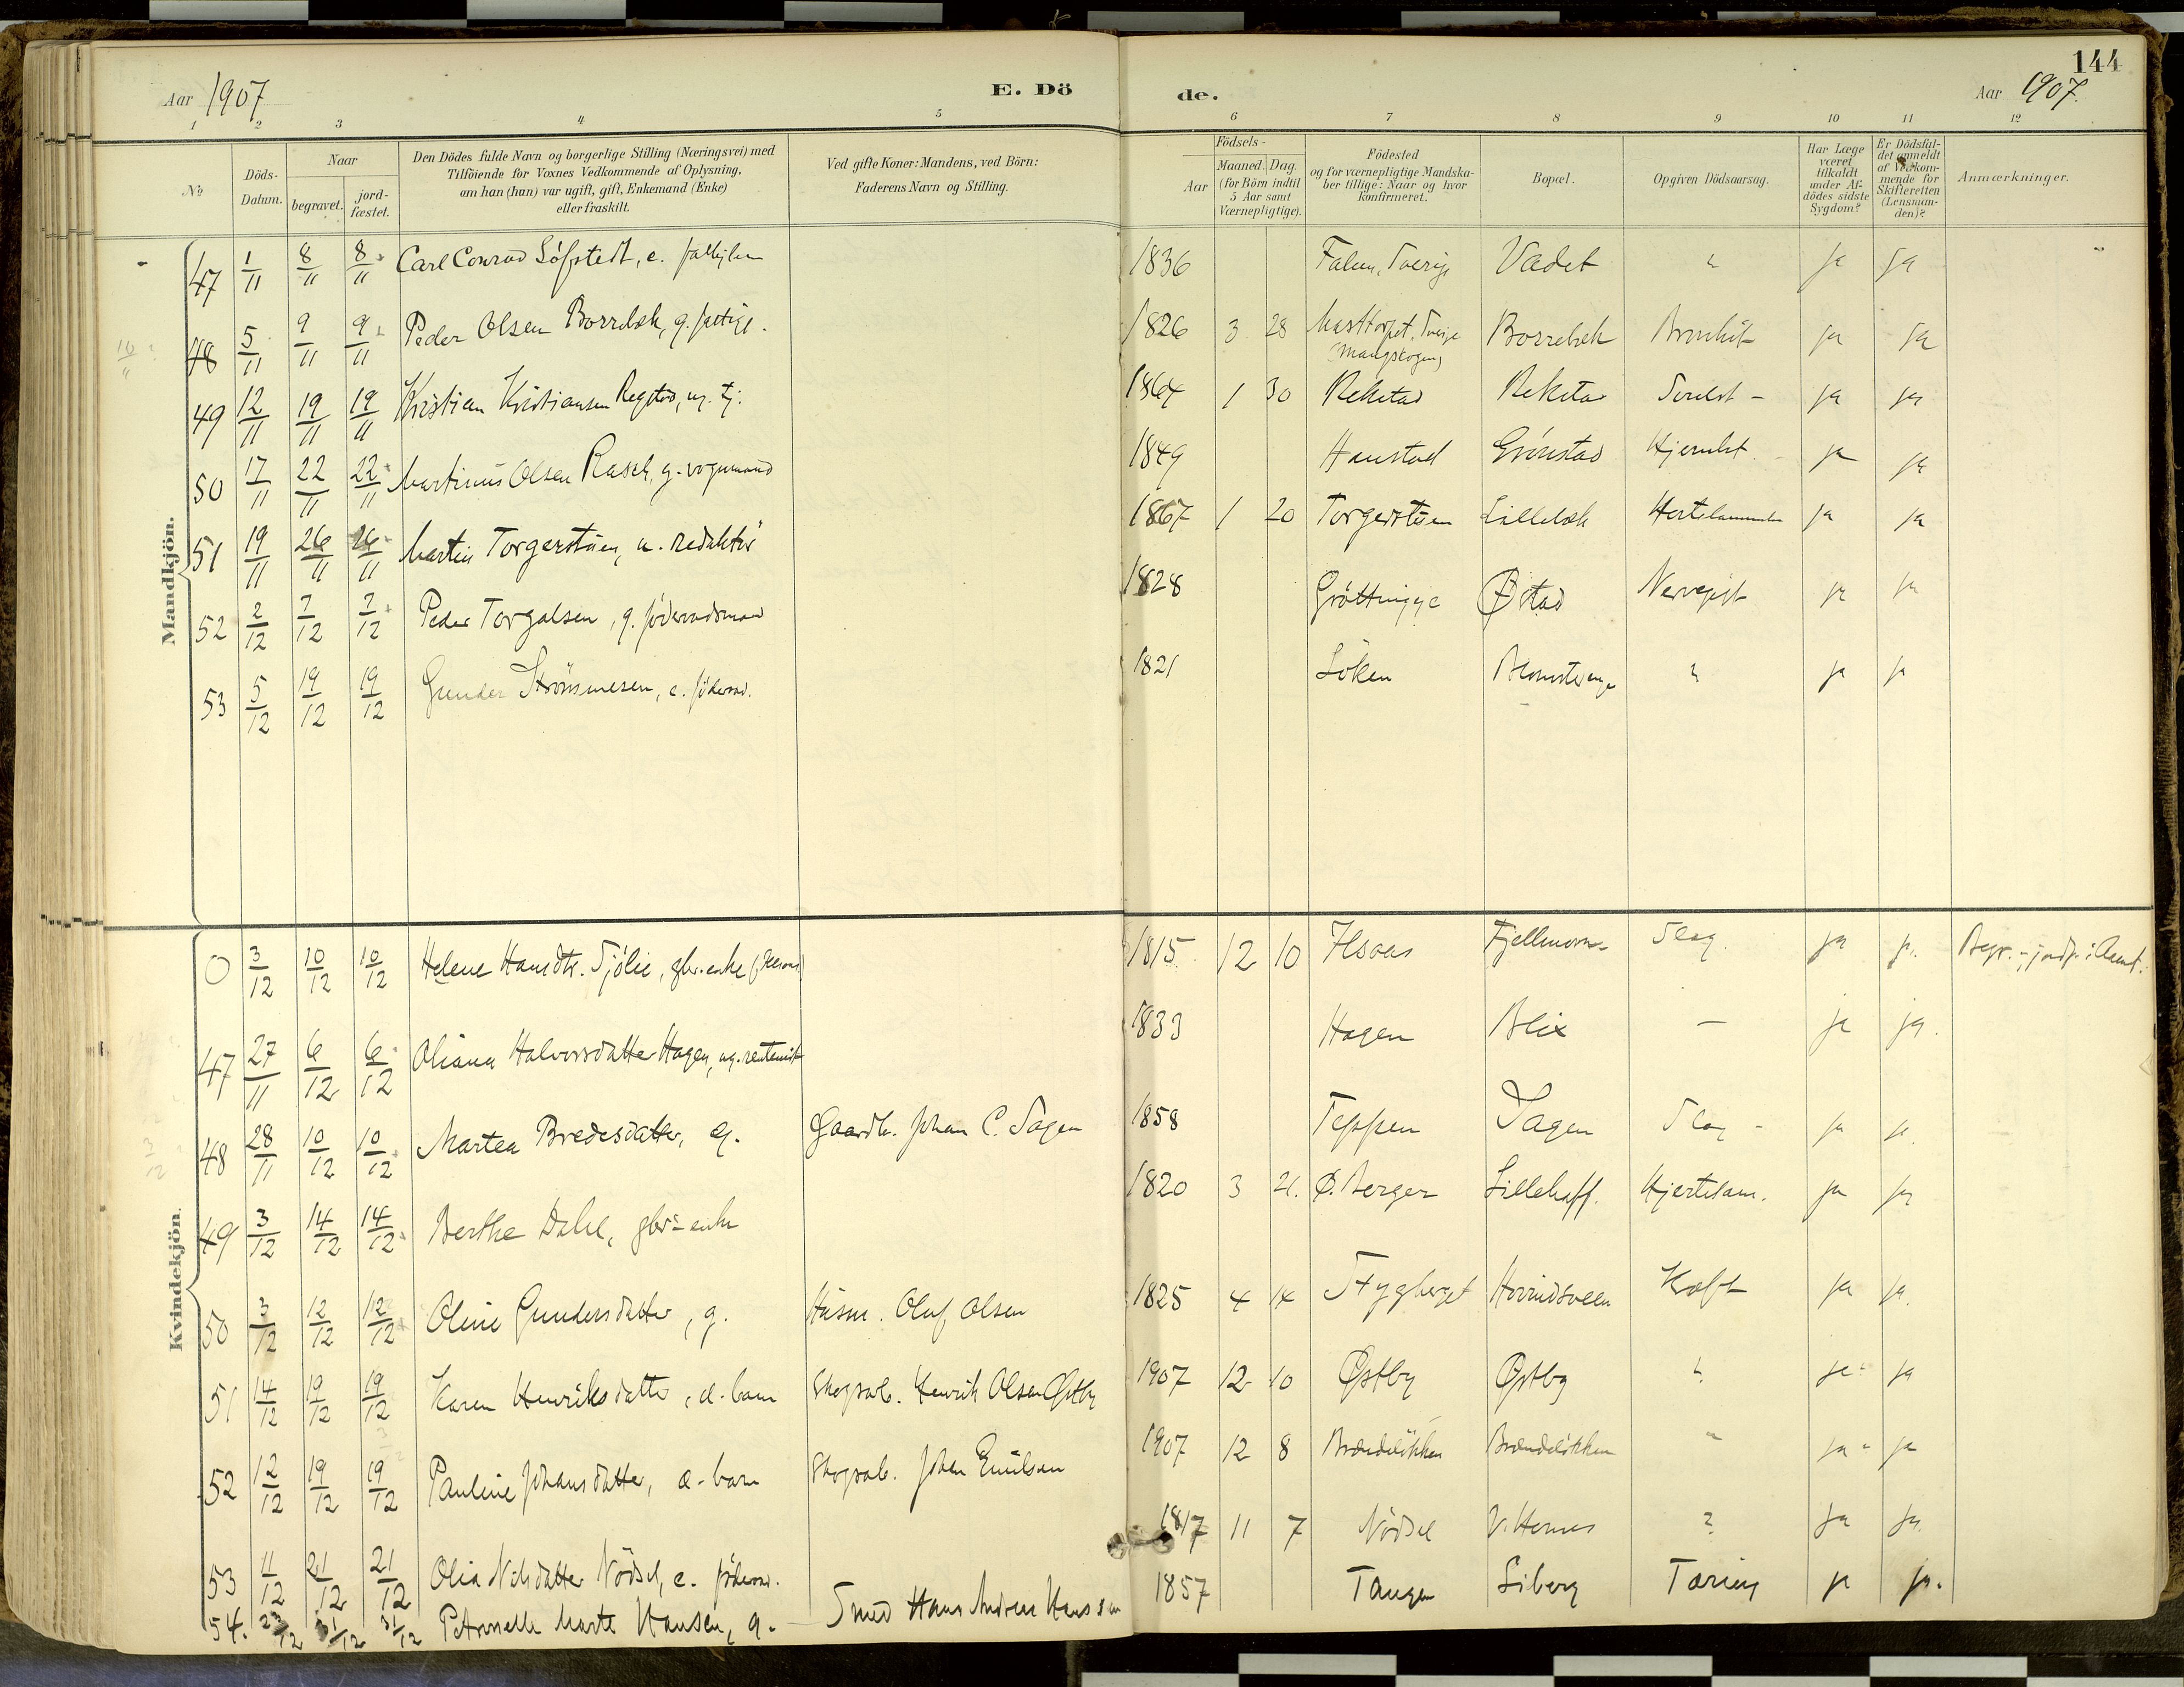 144
Aar 1907 E. Dö de. Aar 1907.
1 2 3 4 5 6 7 8 9 10 11 12
No
Döds-Datum.
Naar
begravet.
jord-fæstet.
Den Dödes fulde Navn og borgerlige Stilling (Næringsvei) med
Tilföiende for Voxnes Vedkommende af Oplysning,
om han (hun) var ugift, gift, Enkemand (Enke)
eller fraskilt.
Ved gifte Koner: Mandens, ved Börn:
Faderens Navn og Stilling.
Födsels-
Aar
Maaned. Dag.
(for Börn indtil
5 Aar samt
Værnepligtige).
Födested
og for værnepligtige Mandska-
ber tillige: Naar og hvor
konfirmeret.
Bopæl.
Opgiven Dödsaarsag.
Har Læge
været
tilkaldt
under Af-
dödes sidste
Sygdom?
Er Dödsfal-
det anmeldt
af Vedkom-
mende for
Skifteretten
(Lensman-
den)?
Anmærkninger.
Mandkjön.
47 1/11 8/11 8/11 Carl Conrad Löfstedt, e. 1836 Falun, Sverige Vadet " ja ja
48 5/11 9/11 9/11 Peder Olsen Borrebæk, g. fattigl. 1826 3 28 Sverige Borrebæk Bronkit ja ja
(Mangskogen)
49 12/11 19/11 19/11 Kristian Kristiansen Regstad, ug. tj. 1864 1 30 Rekstad Rekstad ja ja
50 17/11 22/11 22/11 Martinus Olsen Rasch, g. vognmand 1849 Haustad Grönstad ja ja
51 19/11 26/11 26/11 Martin Torgerstuen, u. redaktör 1867 1 20 Torgerstuen Lillebæk ja ja
52 2/12 7/12 7/12 Peder Torgalsen, g. föderaadsmand 1828 Gröttingye Østad ja ja
53 5/12 19/12 19/12 Gunder Strönsmoen, e. föderaad. 1821 Löken " ja ja
Kvindekjön.
0 3/12 10/12 10/12 Helene Hansdtr. Sjölie, gbr. enke 1815 12 10 Ilsaas Slag. ja ja
47 27/11 6/12 6/12 Oliana Halvorsdatter Hagen, ug. rentenist 1833 Hagen Blix — ja ja.
48 28/11 10/12 10/12 Martea Bredesdatter, g. Gaardbr. Johan C. Sagen 1858 Teppen Sagen Slag - ja ja.
49 3/12 14/12 14/12 Berthe Dahl, gbr. enke 1820 3 21. Ø. Berger Lillehaff. Hjertelam. ja ja
50 3/12 12/12 12/12 Oline Gundersdatter, g. Husm. Oluf Olsen 1825 4 14 Stygberget Hovindsveen Kræft ja ja.
51 14/12 19/12 19/12 Karen Henriksdatter, æ. barn Skogsarb. Henrik Olsen Østby 1907 12 10 Østby Østby " ja ja
52 12/12 19/12 19/12 Pauline Johansdatter, æ. barn Skogsarb. Johan Emilsen 1907 12 8 Brændelökken Brændelökken " ja ja
53 11/12 21/12 21/12 Olea Nilsdatter Nödsel, e. föderaad. 1817 11 7 Nödsel V. Hernes ? ja ja.
54. 23/12 31/12 31/12 Petronelle Marte Hansen, g. Smed Hans Andreas Hanssen 1857 Tangen Liberg Tæring ja ja.